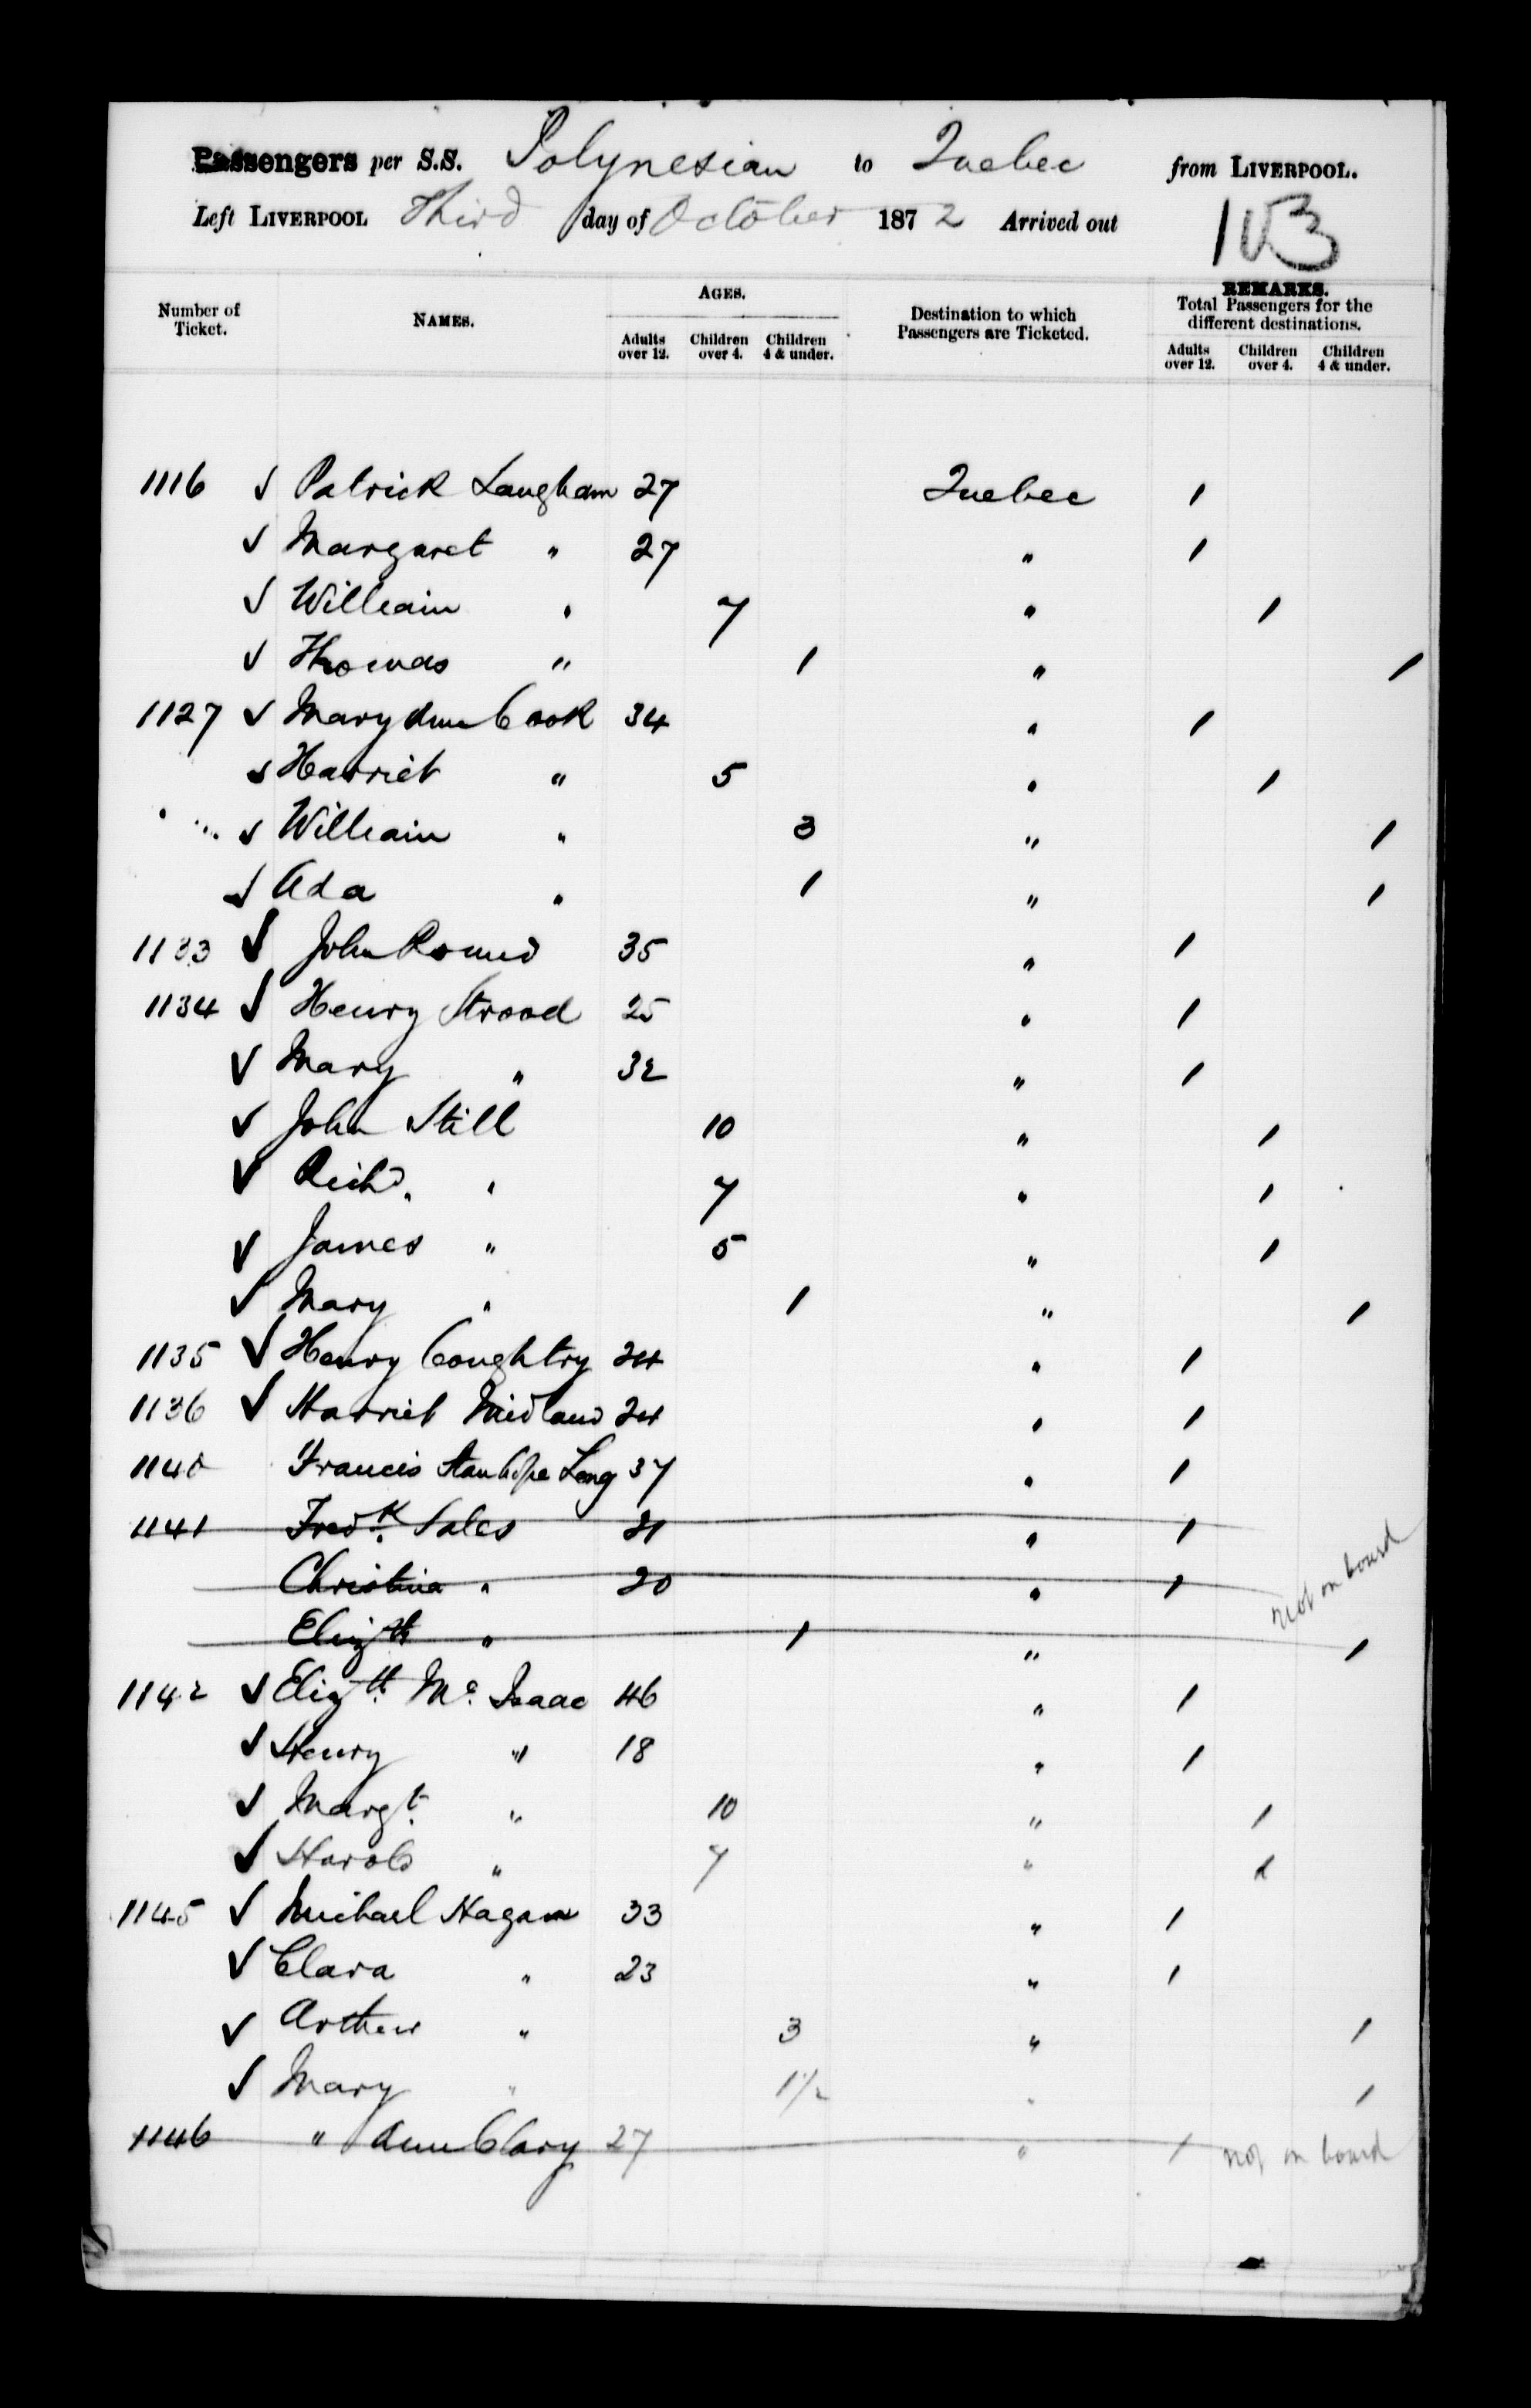 Passengers per S.S. Polynesian to Quebec from LIVERPOOL.
Left LIVERPOOL Third day of October 1872 Arrived out
103
Number of Ticket. NAMES. AGES. Destination to which Passengers are Ticketed. REMARKS. Total Passengers for the different destinations.
Adults over 12. Children over 4. Children 4 & under. Adults over 12. Children over 4. Children 4 & under.
1116 ✓ Patrick Langham 27 Quebec 1
✓ Margaret " 27 " 1
✓ William " 7 " 1
✓ Thomas " 1 " 1
1127 ✓ Mary Ann Cook 34 " 1
✓ Harriet " 5 " 1
✓ William " 3 " 1
✓ Ada " 1 " 1
1133 ✓ John 35 " 1
1134 ✓ Henry Strood 25 " 1
✓ Mary " 32 " 1
✓ John Still 10 " 1
✓ Richd. " 7 " 1
✓ James " 5 " 1
✓ Mary " 1 " 1
1135 ✓ Henry Coughtry 24 " 1
1136 ✓ Harriet Midland 24 " 1
1140 Francis Stanhope Long 37 " 1
1141 Fredk. Sales 21 " 1
Christina " 20 " 1 not on board
Elizth " 1 " 1
1142 ✓ Elizth. Mc. Isaac 46 " 1
✓ Henry " 18 " 1
✓ Margt. " 10 " 1
✓ Harold " 7 " 1
1145 ✓ Michael Hagan 33 " 1
✓ Clara " 23 " 1
✓ Arthur " 3 " 1
✓ Mary " 1 1/2 " 1
1146 " Ann Clary 27 " 1 not on board